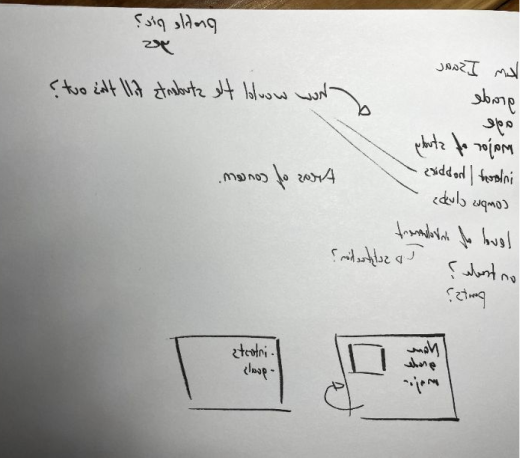 profile pic?
yes
Isaac
grade
age
major of study
interest | hobbies
campus clubs
how would the students fill this out?
Areas of concern.
level of involvement
satisfaction?
on track?
Name
grade
major
- intersts
- goals